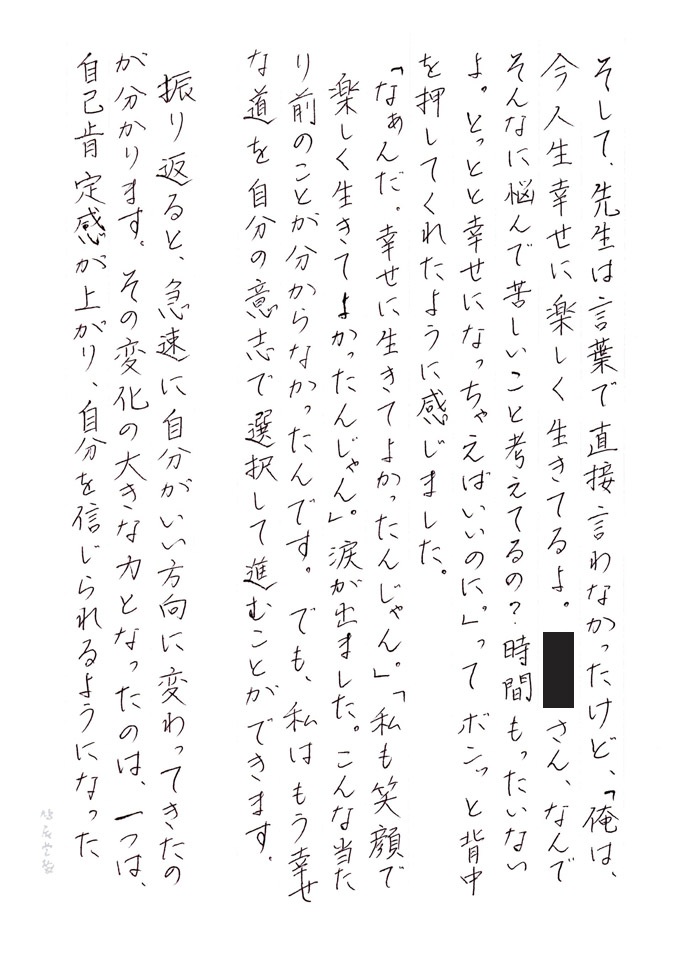 そして、先生は言葉で直接言わなかったけど、「俺は、
今人生幸せに楽しく生きてるよ。さん、なんで
そんなに悩んで苦しいこと考えてるの？時間もったいない
よ。とっとと幸せになっちゃえばいいのに。」ってボンッと背中
を押してくれたように感じました。
「なぁんだ。幸せに生きてよかったんじゃん。」「私も笑顔で
楽しく生きてよかったんじゃん」。涙が出ました。こんな当た
り前のことが分からなかったんです。でも、私はもう幸せ
な道を自分の意志で選択して進むことができます。
振り返ると、急速に自分がいい方向に変わってきたの
が分かります。その変化の大きな力となったのは、一つは、
自己肯定感が上がり、自分を信じられるようになった